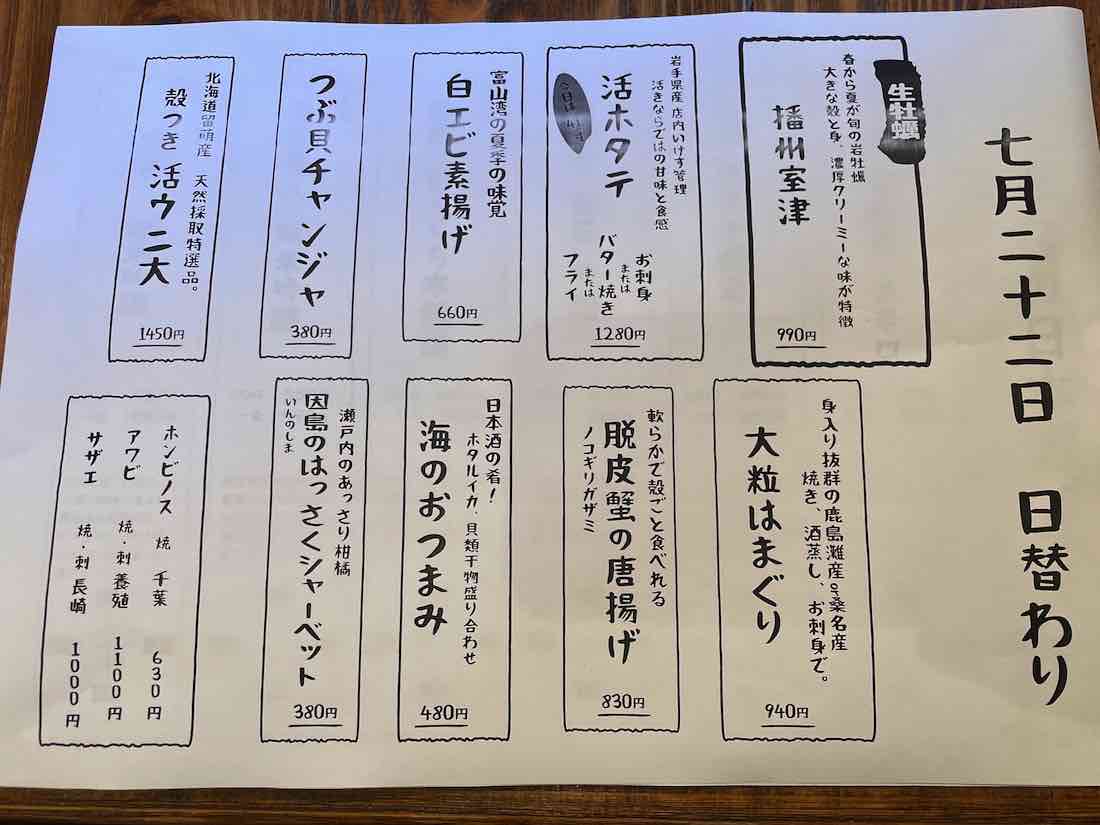 七月二十二日　日替わり
生牡蠣
春から夏が旬の岩牡蠣
大きな殻と身、濃厚クリーミーな味が特徴
播州室津
990円
岩手県産 店内いけす管理
活きならではの甘味と食感
活ホタテ
お刺身
または
バター焼き
または
フライ
1280円
富山湾の夏季の味覚
白エビ素揚げ
660円
つぶ貝チャンジャ
380円
北海道留萌産　天然採取特選品。
殻つき 活ウニ大
1450円
身入り抜群の鹿島灘産or桑名産
焼き、酒蒸し、お刺身で。
大粒はまぐり
940円
軟らかで殻ごと食べれる
脱皮蟹の唐揚げ
ノコギリガザミ
830円
日本酒の肴！
ホタルイカ、貝類干物盛り合わせ
海のおつまみ
480円
瀬戸内のあっさり柑橘
因島のはっさくシャーベット
いんのしま
380円
ホンビノス　焼　千葉　630円
アワビ　焼・刺 養殖　1100円
サザエ　焼・刺 長崎　1000円